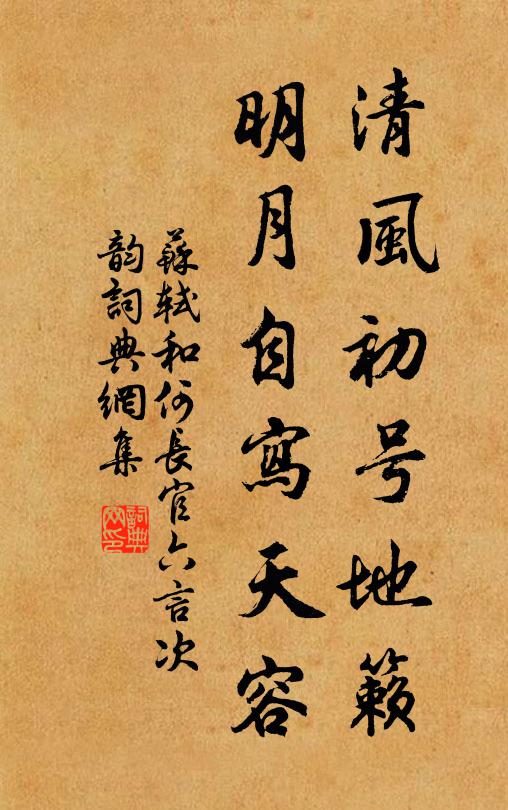 清風初号地籟
明月自寫天容
蘇軾和何長官六言次
韵詞典網集
詞典
网印